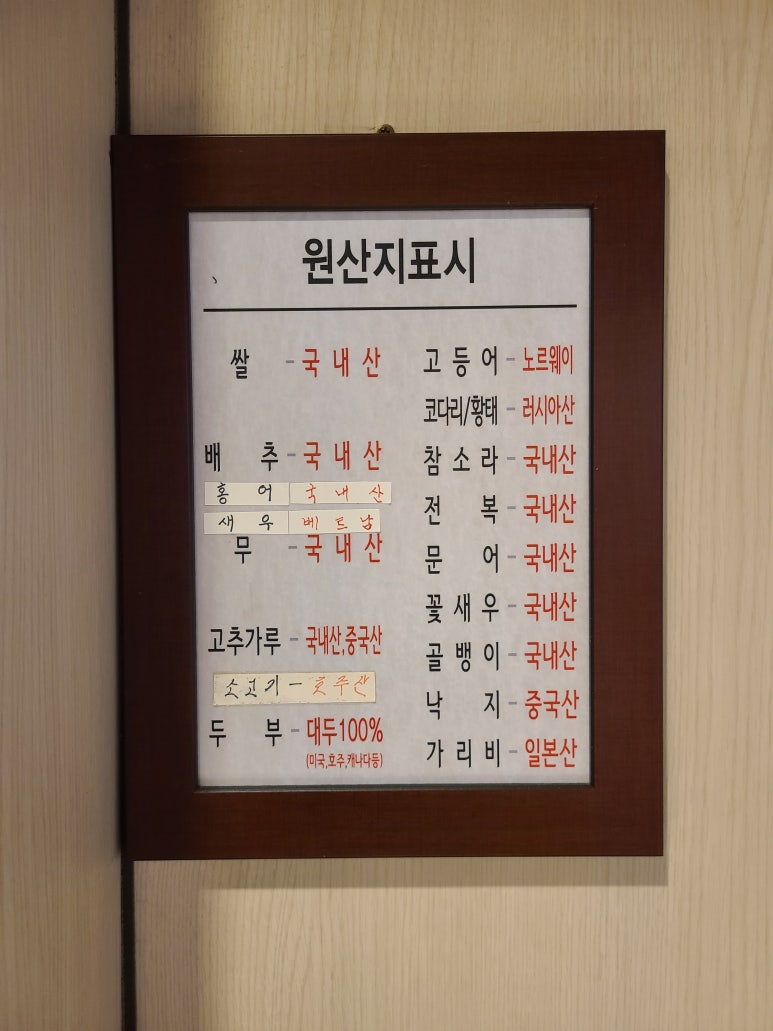 원산지표시
쌀 - 국내산
배추 - 국내산
홍어 국내산
새우 베트남
무 - 국내산
고추가루 - 국내산,중국산
소고기 - 호주산
두부 - 대두100%
(미국,호주,캐나다등)
고등어 - 노르웨이
코다리/황태 - 러시아산
참소라 - 국내산
전복 - 국내산
문어 - 국내산
꽃새우 - 국내산
골뱅이 - 국내산
낙지 - 중국산
가리비 - 일본산